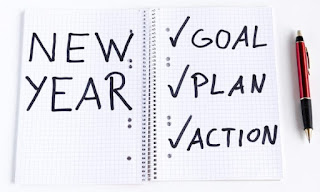 NEW
YEAR
✓GOAL
✓PLAN
✓ACTION